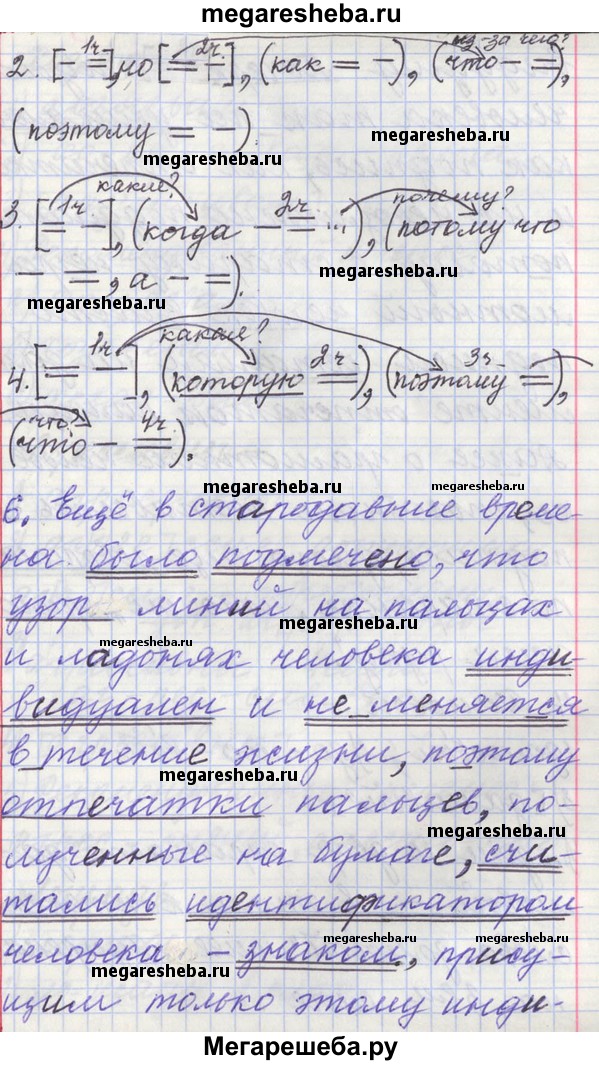 megaresheba.ru
1ч 2ч из-за чего?
2. [– =], но [= –], (как = –), (что – =),
(поэтому = –).
megaresheba.ru
какие? почему?
1ч 2ч
3. [= –], (когда – = ...), (потому что
megaresheba.ru
– =, а – =).
megaresheba.ru
какая?
1ч 2ч 3ч
4. [= –], (которую =), (поэтому =),
megaresheba.ru
что? 4ч
(что – =).
megaresheba.ru
megaresheba.ru
6. Ещё в стародавние време-
на было подмечено, что
узор линий на пальцах
megaresheba.ru
megaresheba.ru
и ладонях человека инди-
видуален и не меняется
в течение жизни, поэтому
megaresheba.ru
отпечатки пальцев, по-
megaresheba.ru
лученные на бумаге, счи-
тались идентификатором
megaresheba.ru
megaresheba.ru
человека – знаком, прису-
megaresheba.ru
щим только этому инди-
Мегарешеба.ру